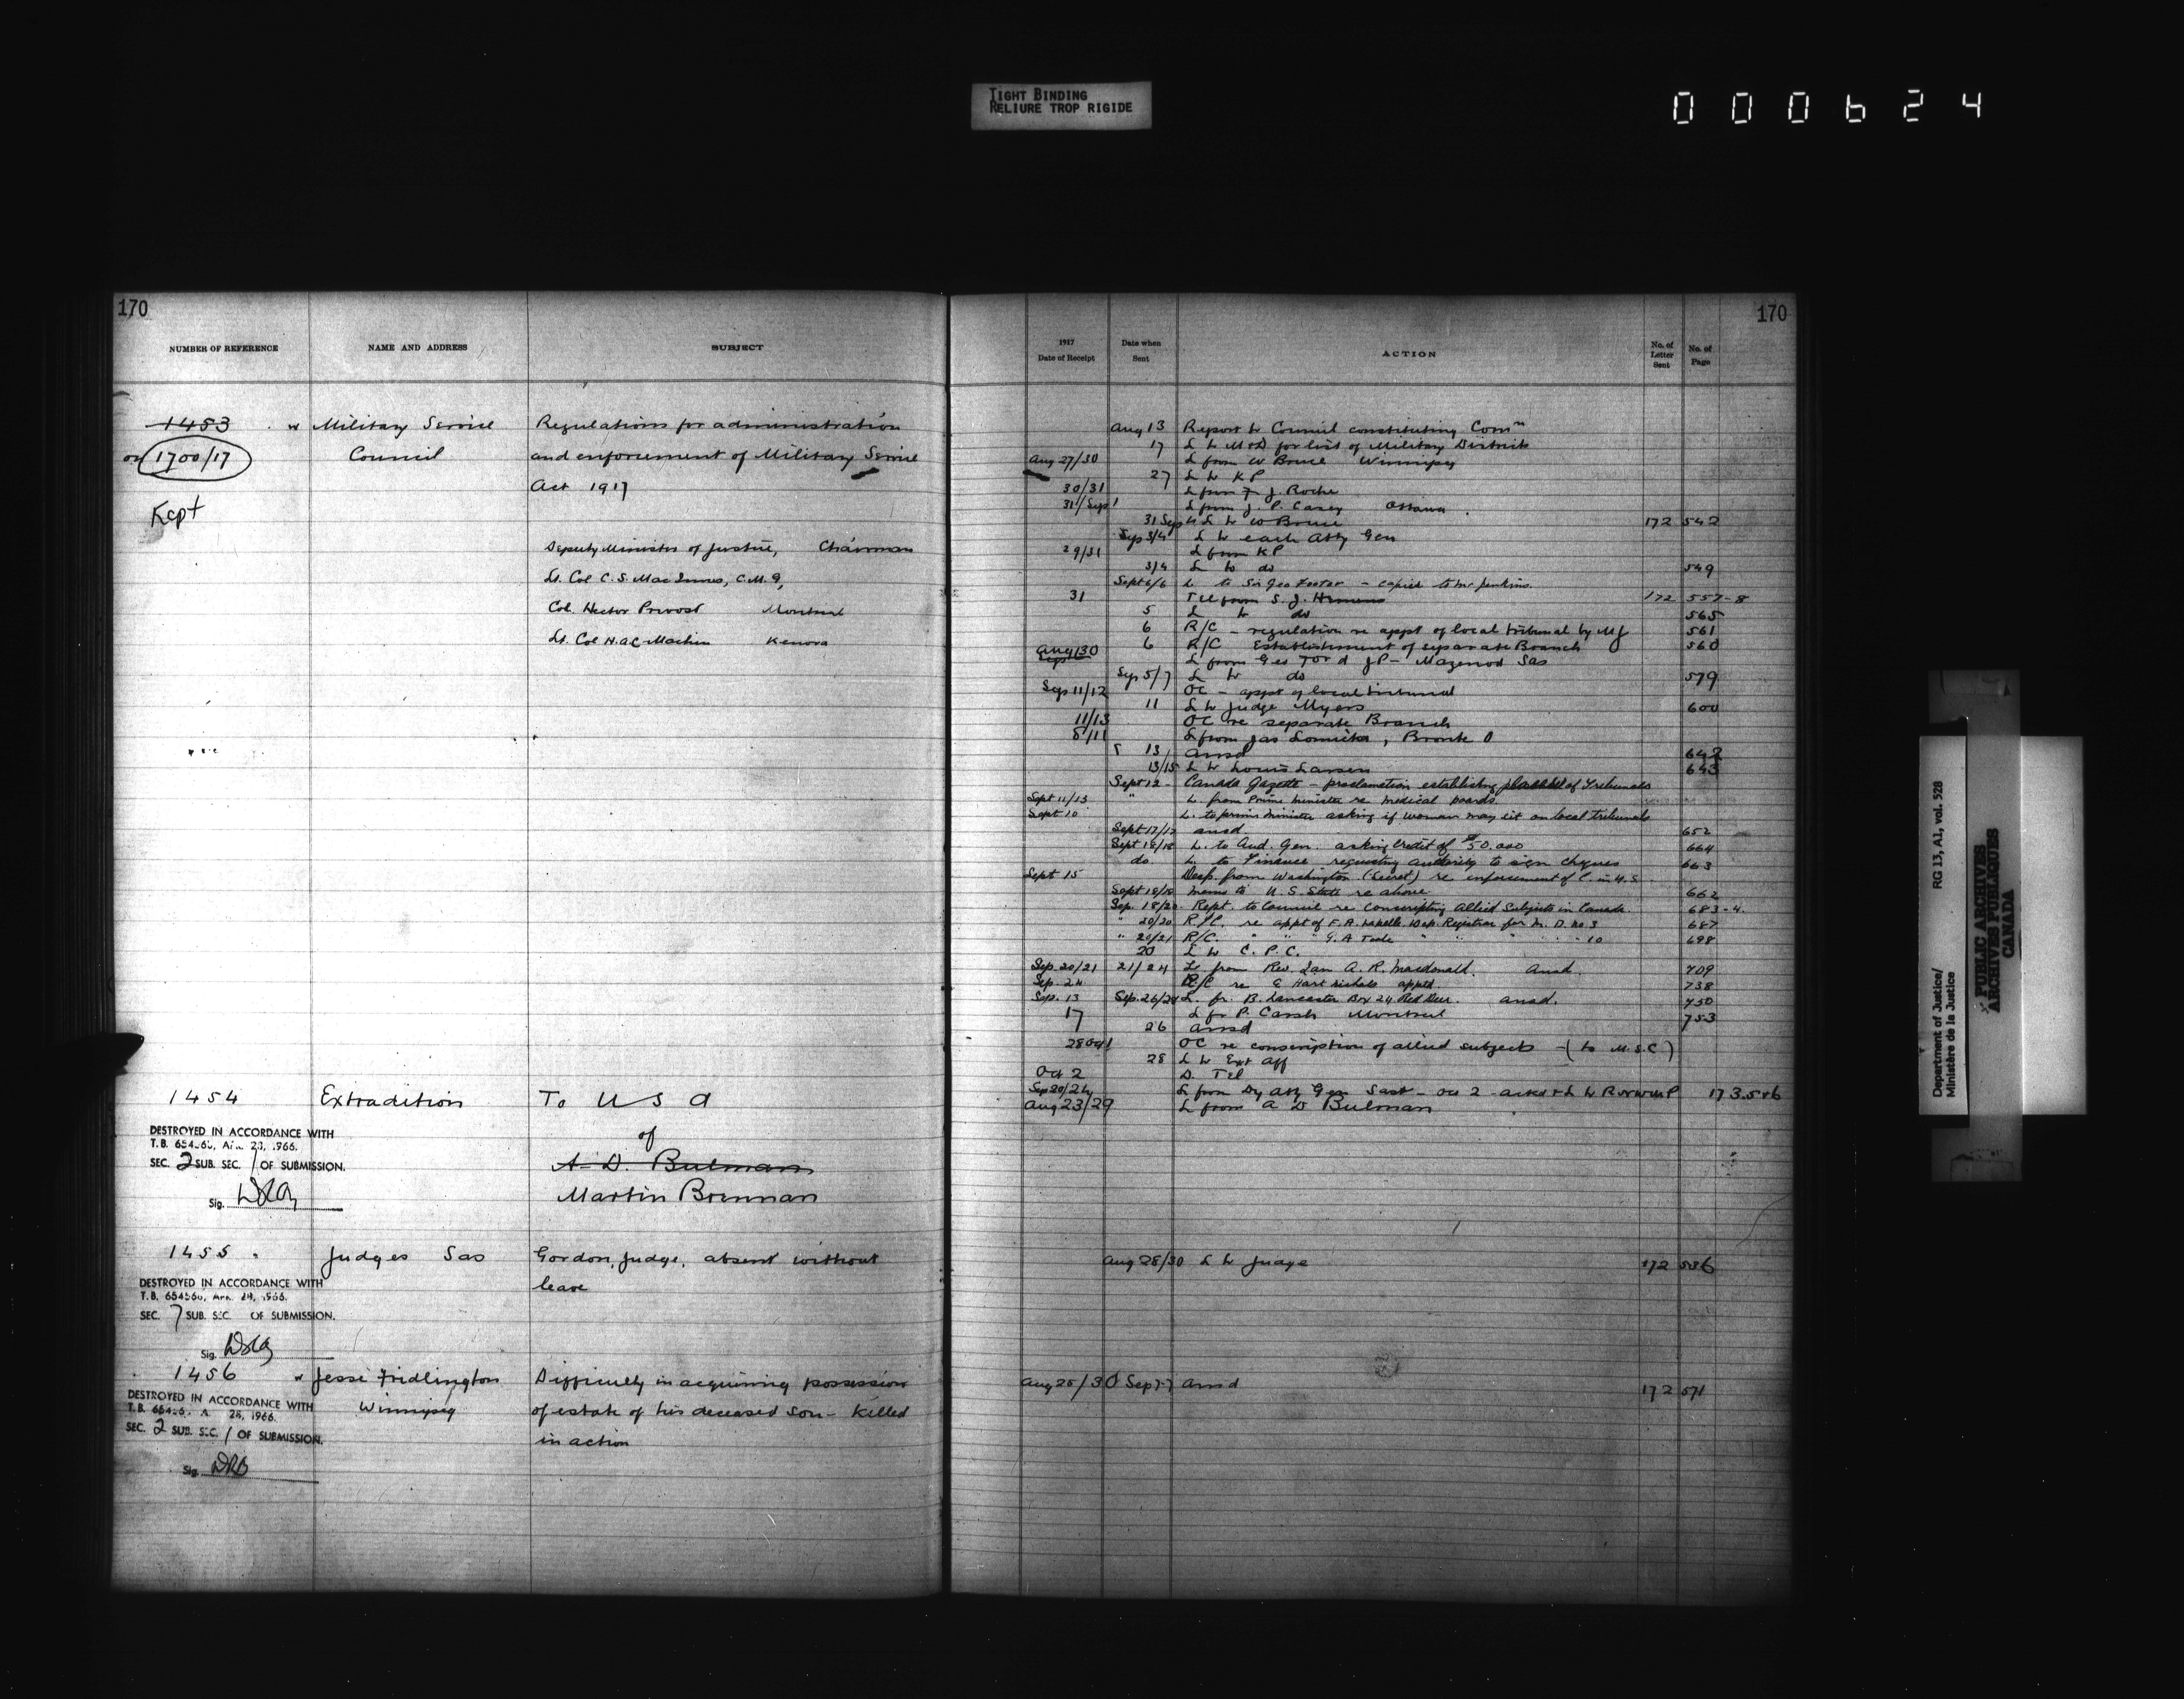 TIGHT BINDING
RELIURE TROP RIGIDE
000624
170
NUMBER OF REFERENCE NAME AND ADDRESS SUBJECT
1453 Military Service Regulations for administration
on 1700/17 Council and enforcement of Military Service
Act 1917
Kept
Deputy Minister of Justice, Chairman
Lt. Col C. S. MacInnes, C.M.G,
Col. Hector Prevost Montreal
Lt. Col H.A.C. Machin Kenora
1454 Extradition To U S A
DESTROYED IN ACCORDANCE WITH
T.B. 654560, Apr. 28, 1966.
SEC. 2 SUB. SEC. 1 OF SUBMISSION.
Sig.
of
A. D. Bulman
Martin Brennan
1455 Judges Sas Gordon, Judge, absent without
leave
DESTROYED IN ACCORDANCE WITH
T.B. 654560, Apr. 28, 1966.
SEC. 7 SUB. SEC. OF SUBMISSION.
Sig.
1456 Jesse Fridlington Difficulty in acquiring possession
Winnipeg of estate of his deceased son - killed
in action
DESTROYED IN ACCORDANCE WITH
SEC. 2 SUB. SEC. 1 OF SUBMISSION.
Sig.
170
1917 Date of Receipt Date when Sent ACTION No. of Letter Sent No. of Page
Aug 13 Report to Council constituting Comn
17 L to M&D for list of Military Districts
Aug 27/30 L from W Bruce Winnipeg
27 L to KP
30/31 L from F. J. Roche
31/Sep 1 L from J. P. Casey Ottawa
31 Sep 4 L to W Bruce 172 542
Sep 3/4 L to each Atty Gen
29/31 L from KP
3/4 L to do 549
Sept 6/6 L. to Sir Geo Foster - copied to Mr. Jenkins.
31 Tel from S. J. 172 557-8
5 L to do 565
6 R/C - regulation re appt of local tribunal by MJ 561
6 R/C Establishment of separate Branch 560
Aug 30 L from Geo Ford JP - Mazenod Sas
Sep 5/7 L to do 579
Sep 11/12 OC - appt of local tribunal
11 L to Judge Myers 600
11/13 OC re separate Branch
8/11 L from Jas , Bronte O
13 ansd 642
13/15 L to Louis Larsen 643
Sept 12 - Canada Gazette - proclamation establishing of Tribunals
Sept 11/13 " L. from Prime Minister re medical boards.
Sept 10 L. to prime minister asking if woman may sit on local tribunals
Sept 17/17 ansd 652
Sept 18/18 L. to Aud. Gen. asking credit of $50.000 664
do. L. to Finance requesting authority to sign cheques 663
Sept 15 Desp. from Washington (Secret) re enforcement of C. in U.S.
Sept 18/18 memo to U.S. State re above 662
Sep. 18/20 Rept. to Council re Conscripting Allied Subjects in Canada. 683-4.
" 20/20 R/C. re appt of F.A. Labelle Dep. Registrar for M. D. No 3 687
" 20/21 R/C. " " " G. A " " " " 10 698
20 L to C. P. C.
Sep. 20/21 21/24 L from Rev. Ian A. R. Macdonald. Ansd. 709
Sep. 24 R/C re E Hart Nichols apptd. 738
Sep. 13 Sep. 26/28 L. fr. B. Lancaster Box 24 Red Deer. ansd. 750
17 L fr P. Carsh Montreal 753
26 ansd
28 Oct 1 OC re conscription of allied subjects - (to M.S.C)
28 L to Ext Aff
Oct 2 D. Tel
Sep 20/24 L from Dy Atty Gen Sast - Oct 2 - ackd & L to RNWMP 173.5+6
Aug 23/29 L from A D Bulman
Aug 28/30 L to Judge 172 536
Aug 25/30 Sep 7-7 ansd 172 571
Department of Justice/ RG 13, A1, vol. 528
Ministère de la Justice
PUBLIC ARCHIVES
ARCHIVES PUBLIQUES
CANADA